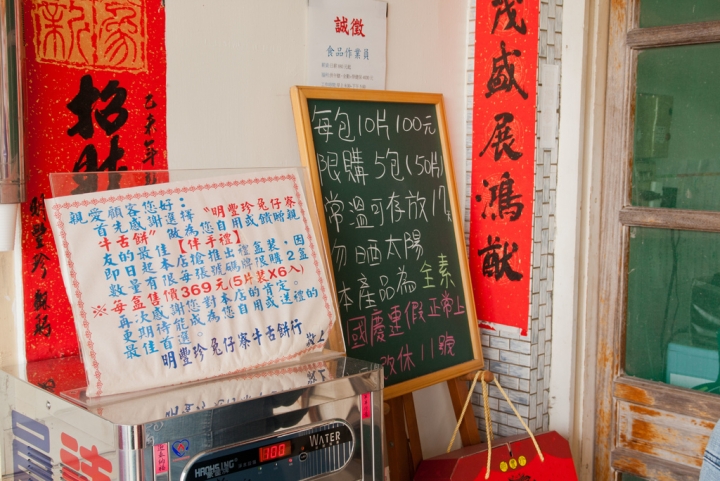 招財
己亥年
明豐珍
誠徵
食品作業員
茂盛展鴻猷
每包10片100元
限購5包(50片)
常溫可存放17天
勿晒太陽
本產品為全素
國慶連假正常上
改休11號
親愛顧客您好：
首先感謝選擇"明豐珍兔仔寮
牛舌餅"做為您自用或饋贈親
友的最佳【伴手禮】
即日起本店搶推出禮盒裝，因
數量有限每張號碼牌限購2盒
※每盒售價369元(5片裝X6入)
再次感謝您對本店的肯定
更期待能成為您自用或送禮的
最佳首選
明豐珍兔仔寮牛舌餅行
HAOHSING
WATER
100